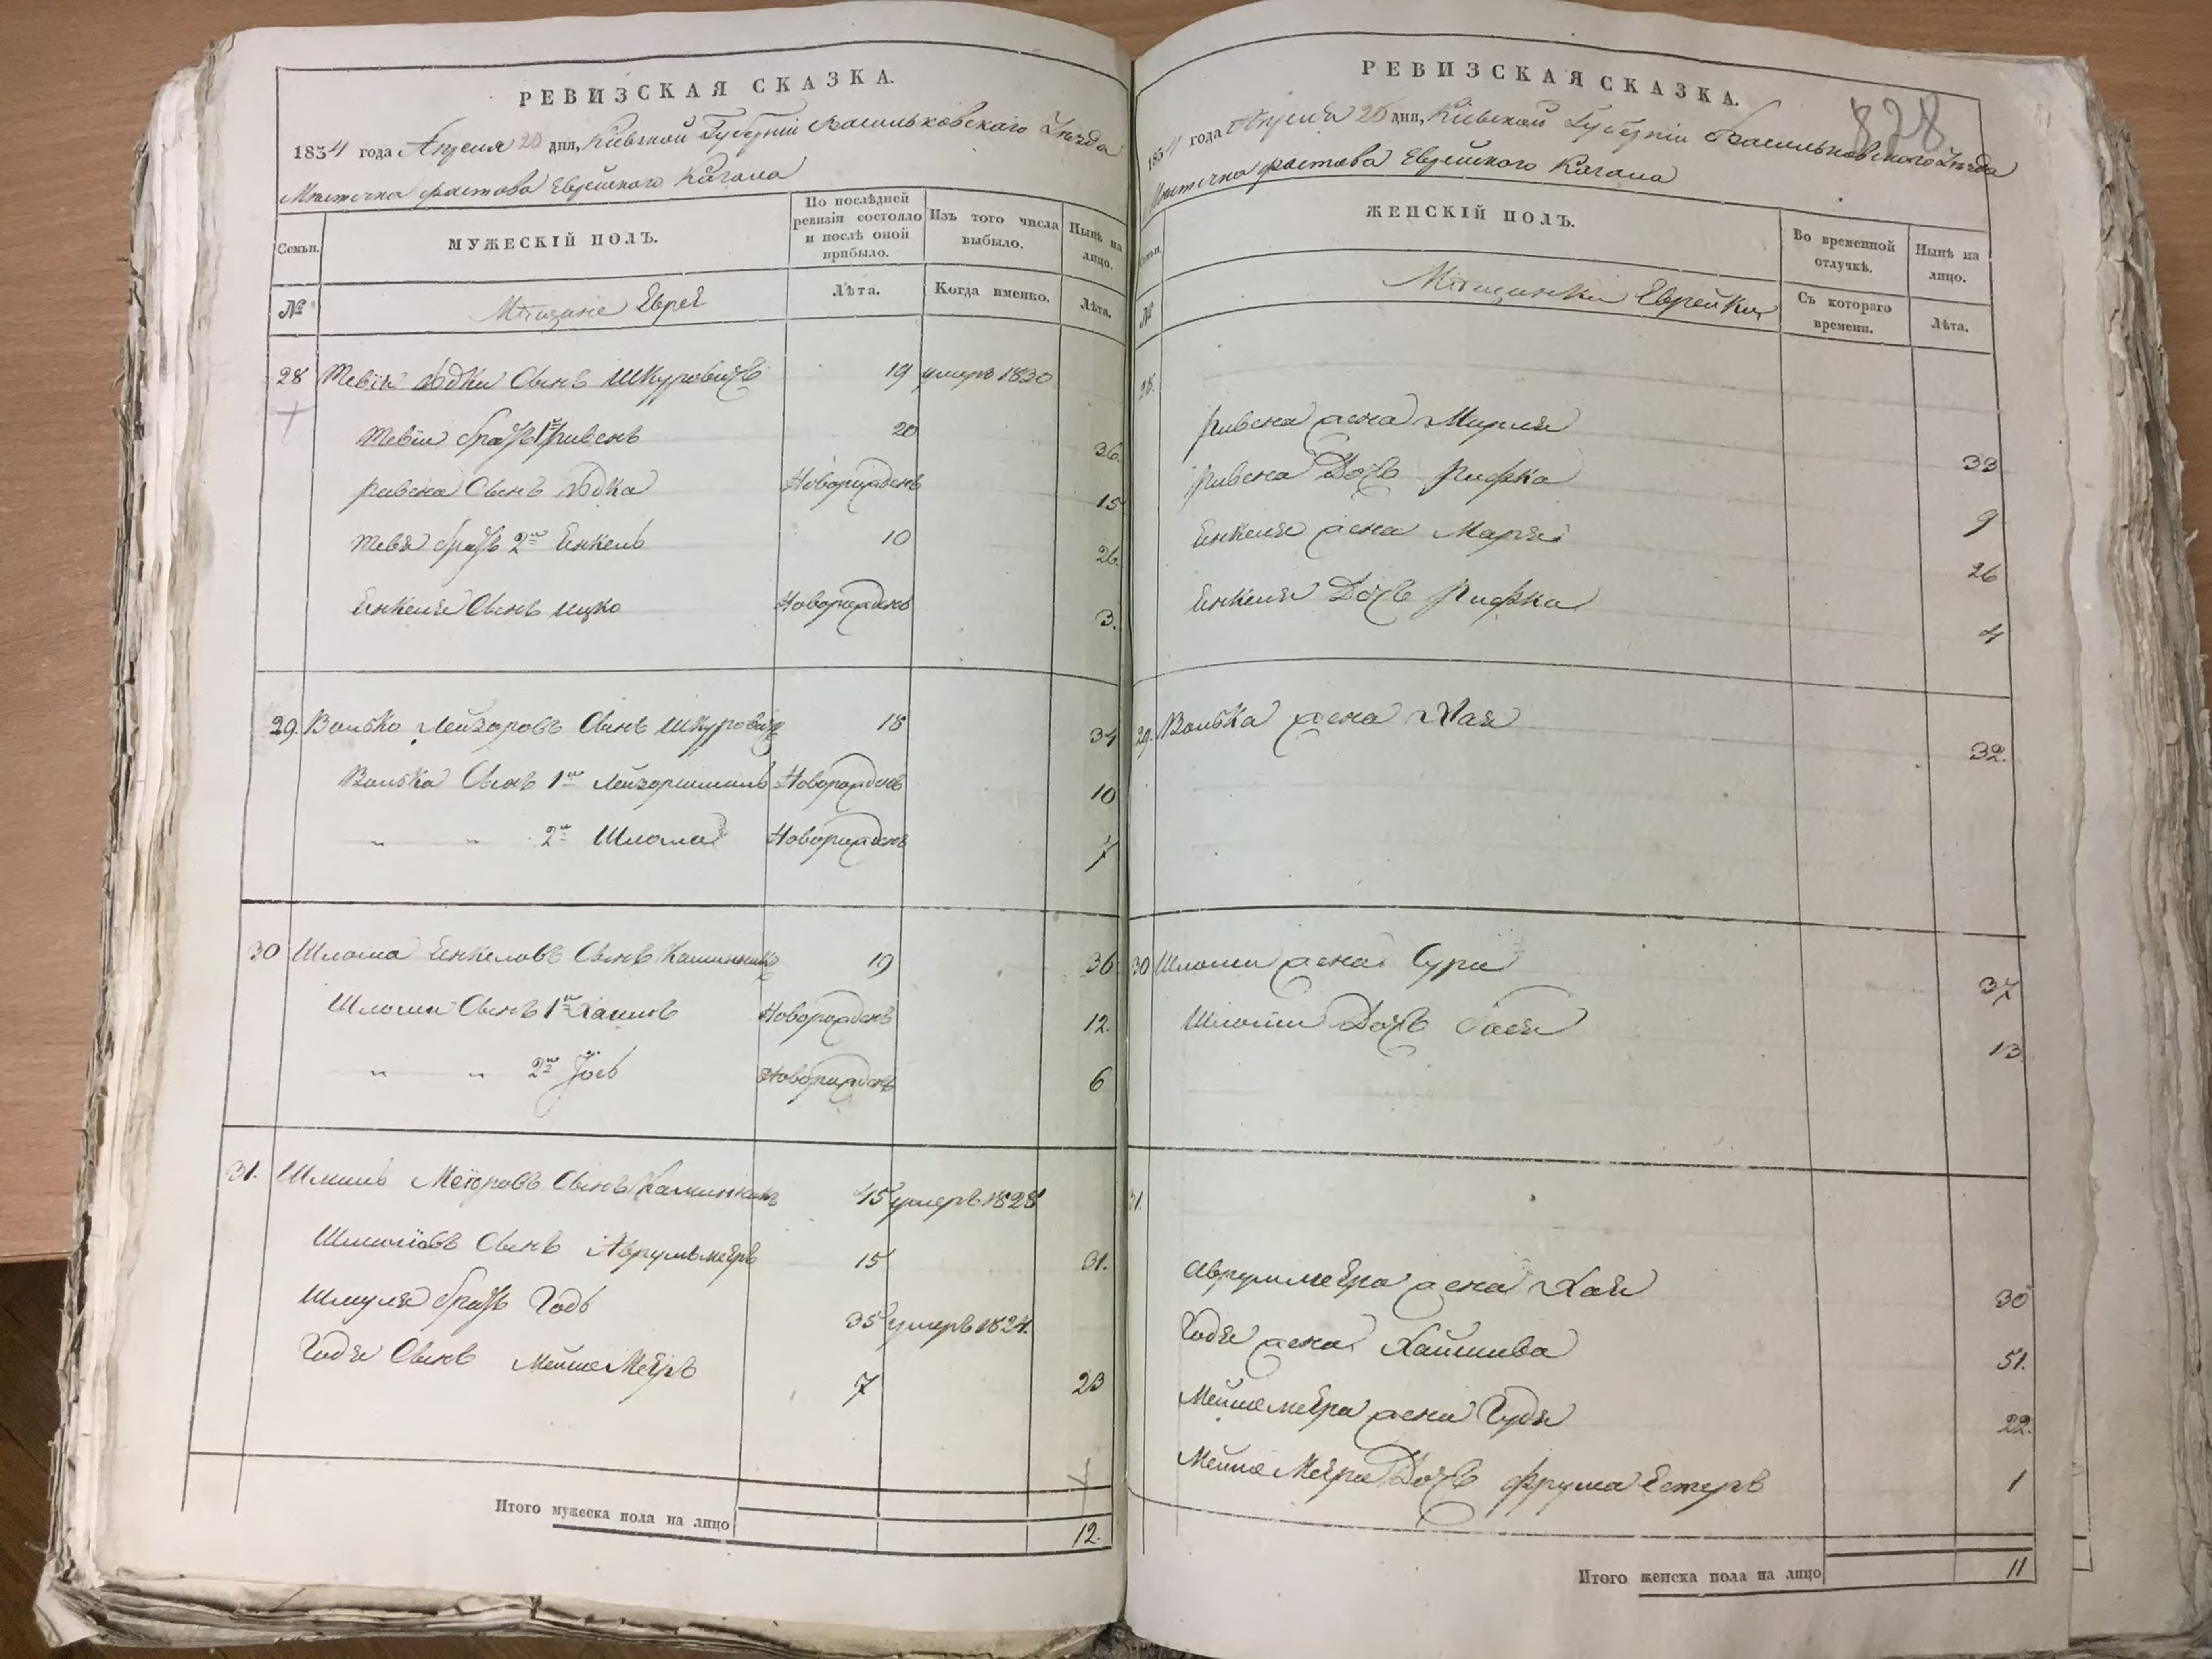 РЕВИЗСКАЯ СКАЗКА.
1834 года Апреля 20 дня, Кіевской Губерніи Васильковскаго Уезда
Местечка Фастова Еврейского Кагала
Семьи.
МУЖЕСКІЙ ПОЛЪ.
По послѣдней ревизіи состояло и послѣ оной прибыло.
Изъ того числа выбыло.
Нынѣ на лицо.
№
Мѣщане Евреи
Лѣта.
Когда именно.
Лѣта.
28 Тевія Іодки Сынъ Шкуровичъ 19 умеръ 1830
Тевіи братъ 1й Ривенъ 20 36.
Ривена Сынъ Іодка Новорожденъ 15
Тевія братъ 2й Енкель 10 26.
Енкеля Сынъ Ицко Новорожденъ 3.
29. Волько Лейзоровъ Сынъ Шкуровичъ 18 34
Волька Сынъ 1й Лейзоршмиль Новорожденъ 10
" " 2й Шлома Новорожденъ 7
30 Шлома Енкеловъ Сынъ Каминникъ 19 36
Шломи Сынъ 1й Хаимъ Новорожденъ 12.
" " 2й Іось Новорожденъ 6
31. Шмиль Меіоровъ Сынъ Каминникъ 45 умеръ 1828
Шмиліовъ Сынъ Аврумъмееръ 15 31.
Шмуля братъ Годь 35 умеръ 1824.
Годя Сынъ МейшеМееръ 7 23
Итого мужеска пола на лицо 12.
828
РЕВИЗСКАЯ СКАЗКА.
1834 года Апреля 20 дня, Кіевской Губерніи Васильковского Уезда
Местечка Фастова Еврейского Кагала
ЖЕНСКІЙ ПОЛЪ.
Во временной отлучкѣ.
Нынѣ на лицо.
№
Мѣщанки Еврейки
Съ котораго времени.
Лѣта.
28.
Ривена жена Мирля 33
Ривена Дочь Рифка 9
Енкеля жена Марья 26
Енкеля Дочь Рифка 4
29. Волька жена Хая 32.
30 Шломи жена Сура 37
Шломи Дочь Бася 13
31.
Авруммеера жена Хая 30
Годя жена Хайшива 51.
Мейшемеера жена Гудя 22.
МейшеМеера Дочь Фрума Естеръ 1
Итого женска пола на лицо 11